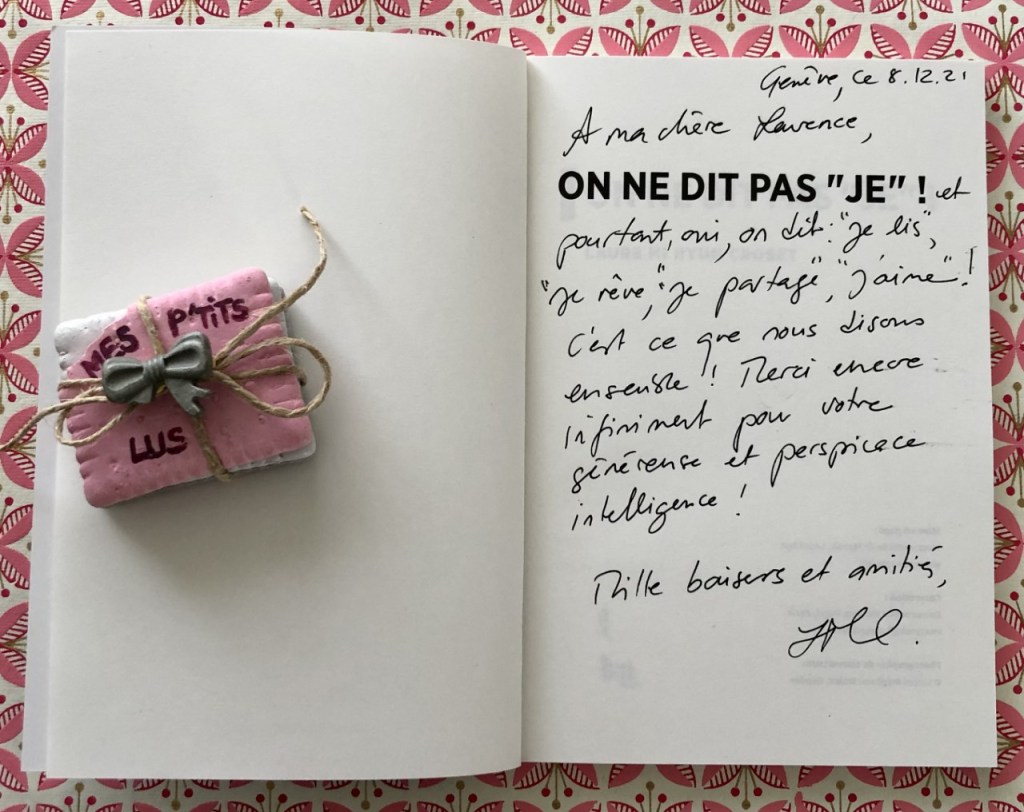 MES P'TITS
LUS
Genève, ce 8.12.21
A ma chère Laurence,
ON NE DIT PAS "JE" ! et
pourtant, oui, on dit : "je lis",
"je rêve", "je partage", "j'aime" !
C'est ce que nous disons
ensemble ! Merci encore
infiniment pour votre
généreuse et perspicace
intelligence !
Mille baisers et amitiés,